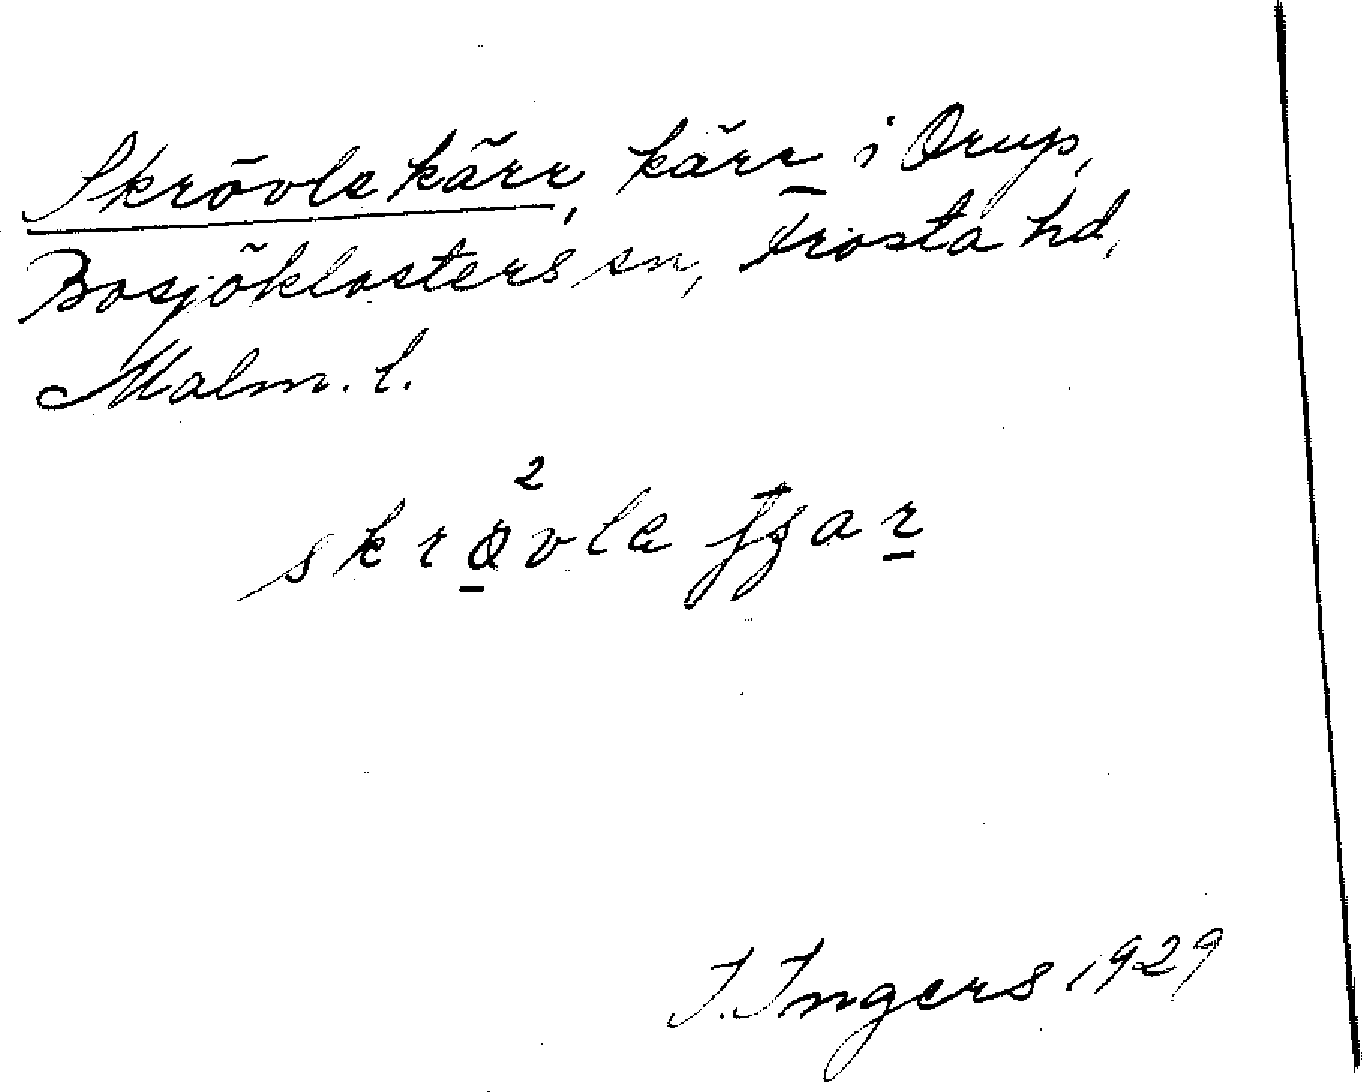 Skrövlekärr, kärr i Orup,
Bosjöklosters sn, Frosta hd,
Malm. l.
2
skrövle
I. Ingers 1929